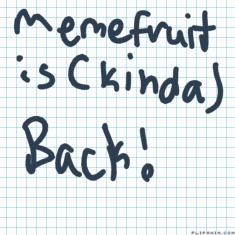 memefruit
is (kinda)
Back!
FLIPANIM.COM